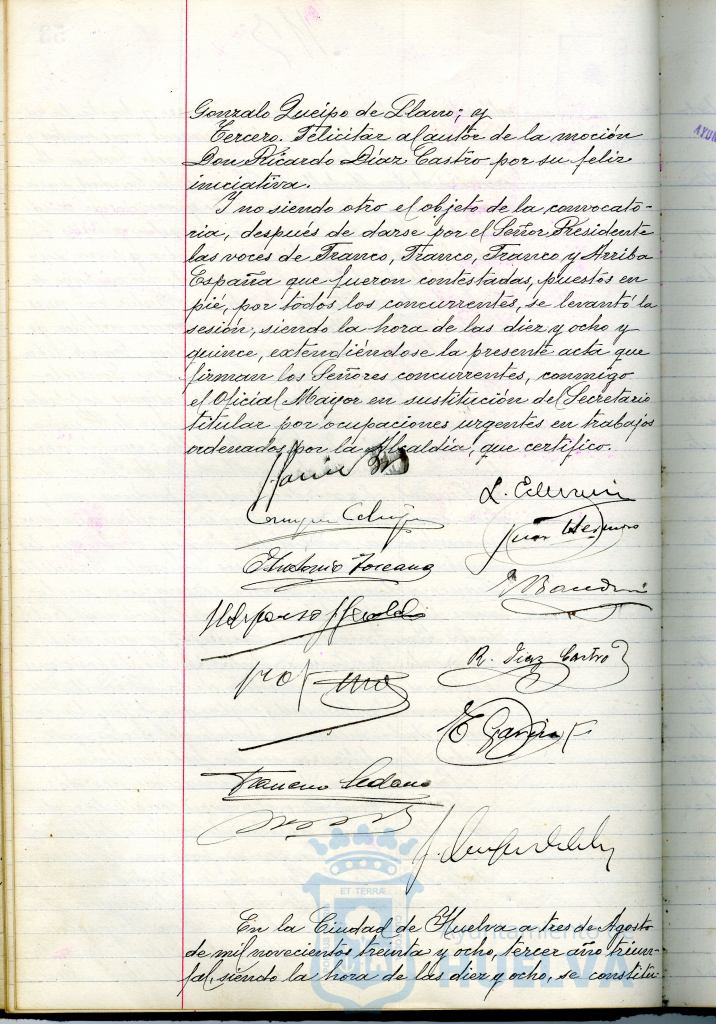 Gonzalo Queipo de Llano; y
Tercero. Felicitar al autor de la moción
Don Ricardo Díaz Castro por su feliz
iniciativa.
Y no siendo otro el objeto de la convocato-
ria, después de darse por el Señor Presidente
las voces de Franco, Franco, Franco y Arriba
España que fueron contestadas, puestos en
pié, por todos los concurrentes, se levantó la
sesión, siendo la hora de las diez y ocho y
quince, extendiéndose la presente acta que
firman los Señores concurrentes, conmigo
el Oficial Mayor en sustitución del Secretario
titular por ocupaciones urgentes en trabajos
ordenados por la Alcaldía, que certifico.
Juan
R. Díaz Castro
E García
Francisco Sedano
ET TERRÆ
En la Ciudad de Huelva a tres de Agosto
de mil novecientos treinta y ocho, tercer año triun-
fal, siendo la hora de las diez y ocho, se constitu-
Ayuntamiento de
HUELVA
AYUN